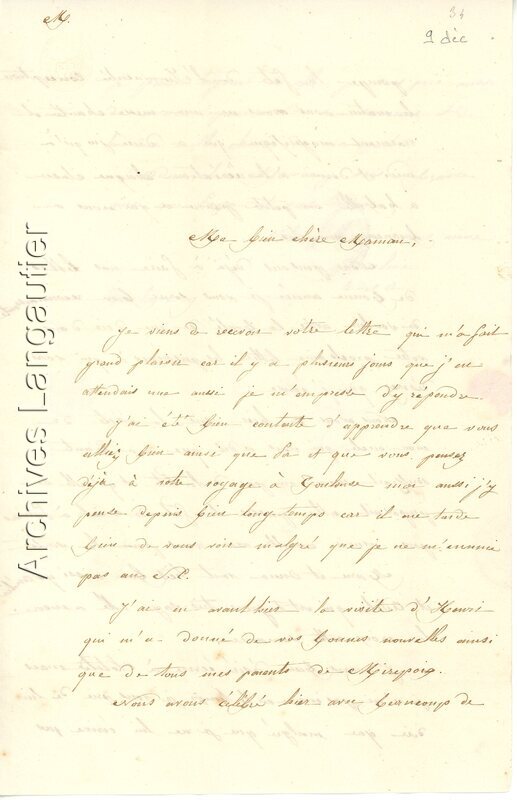 M.
34
9 déc
Archives Langautier
Ma bien chère Maman,
Je viens de recevoir votre lettre qui m'a fait
grand plaisir car il y a plusieurs jours que j'en
attendais une aussi je m'empresse d'y répondre
J'ai été bien contente d'apprendre que vous
alliez bien ainsi que et que vous pensez
déjà à votre voyage à Toulouse moi aussi j'y
pense depuis bien long temps car il me tarde
bien de vous voir malgré que je ne m'ennuie
pas au S.C.
J'ai eu avant hier la visite d'Henri
qui m'a donné de vos bonnes nouvelles ainsi
que de tous mes parents de Mirepoix.
Nous avons célébré hier avec beaucoup de